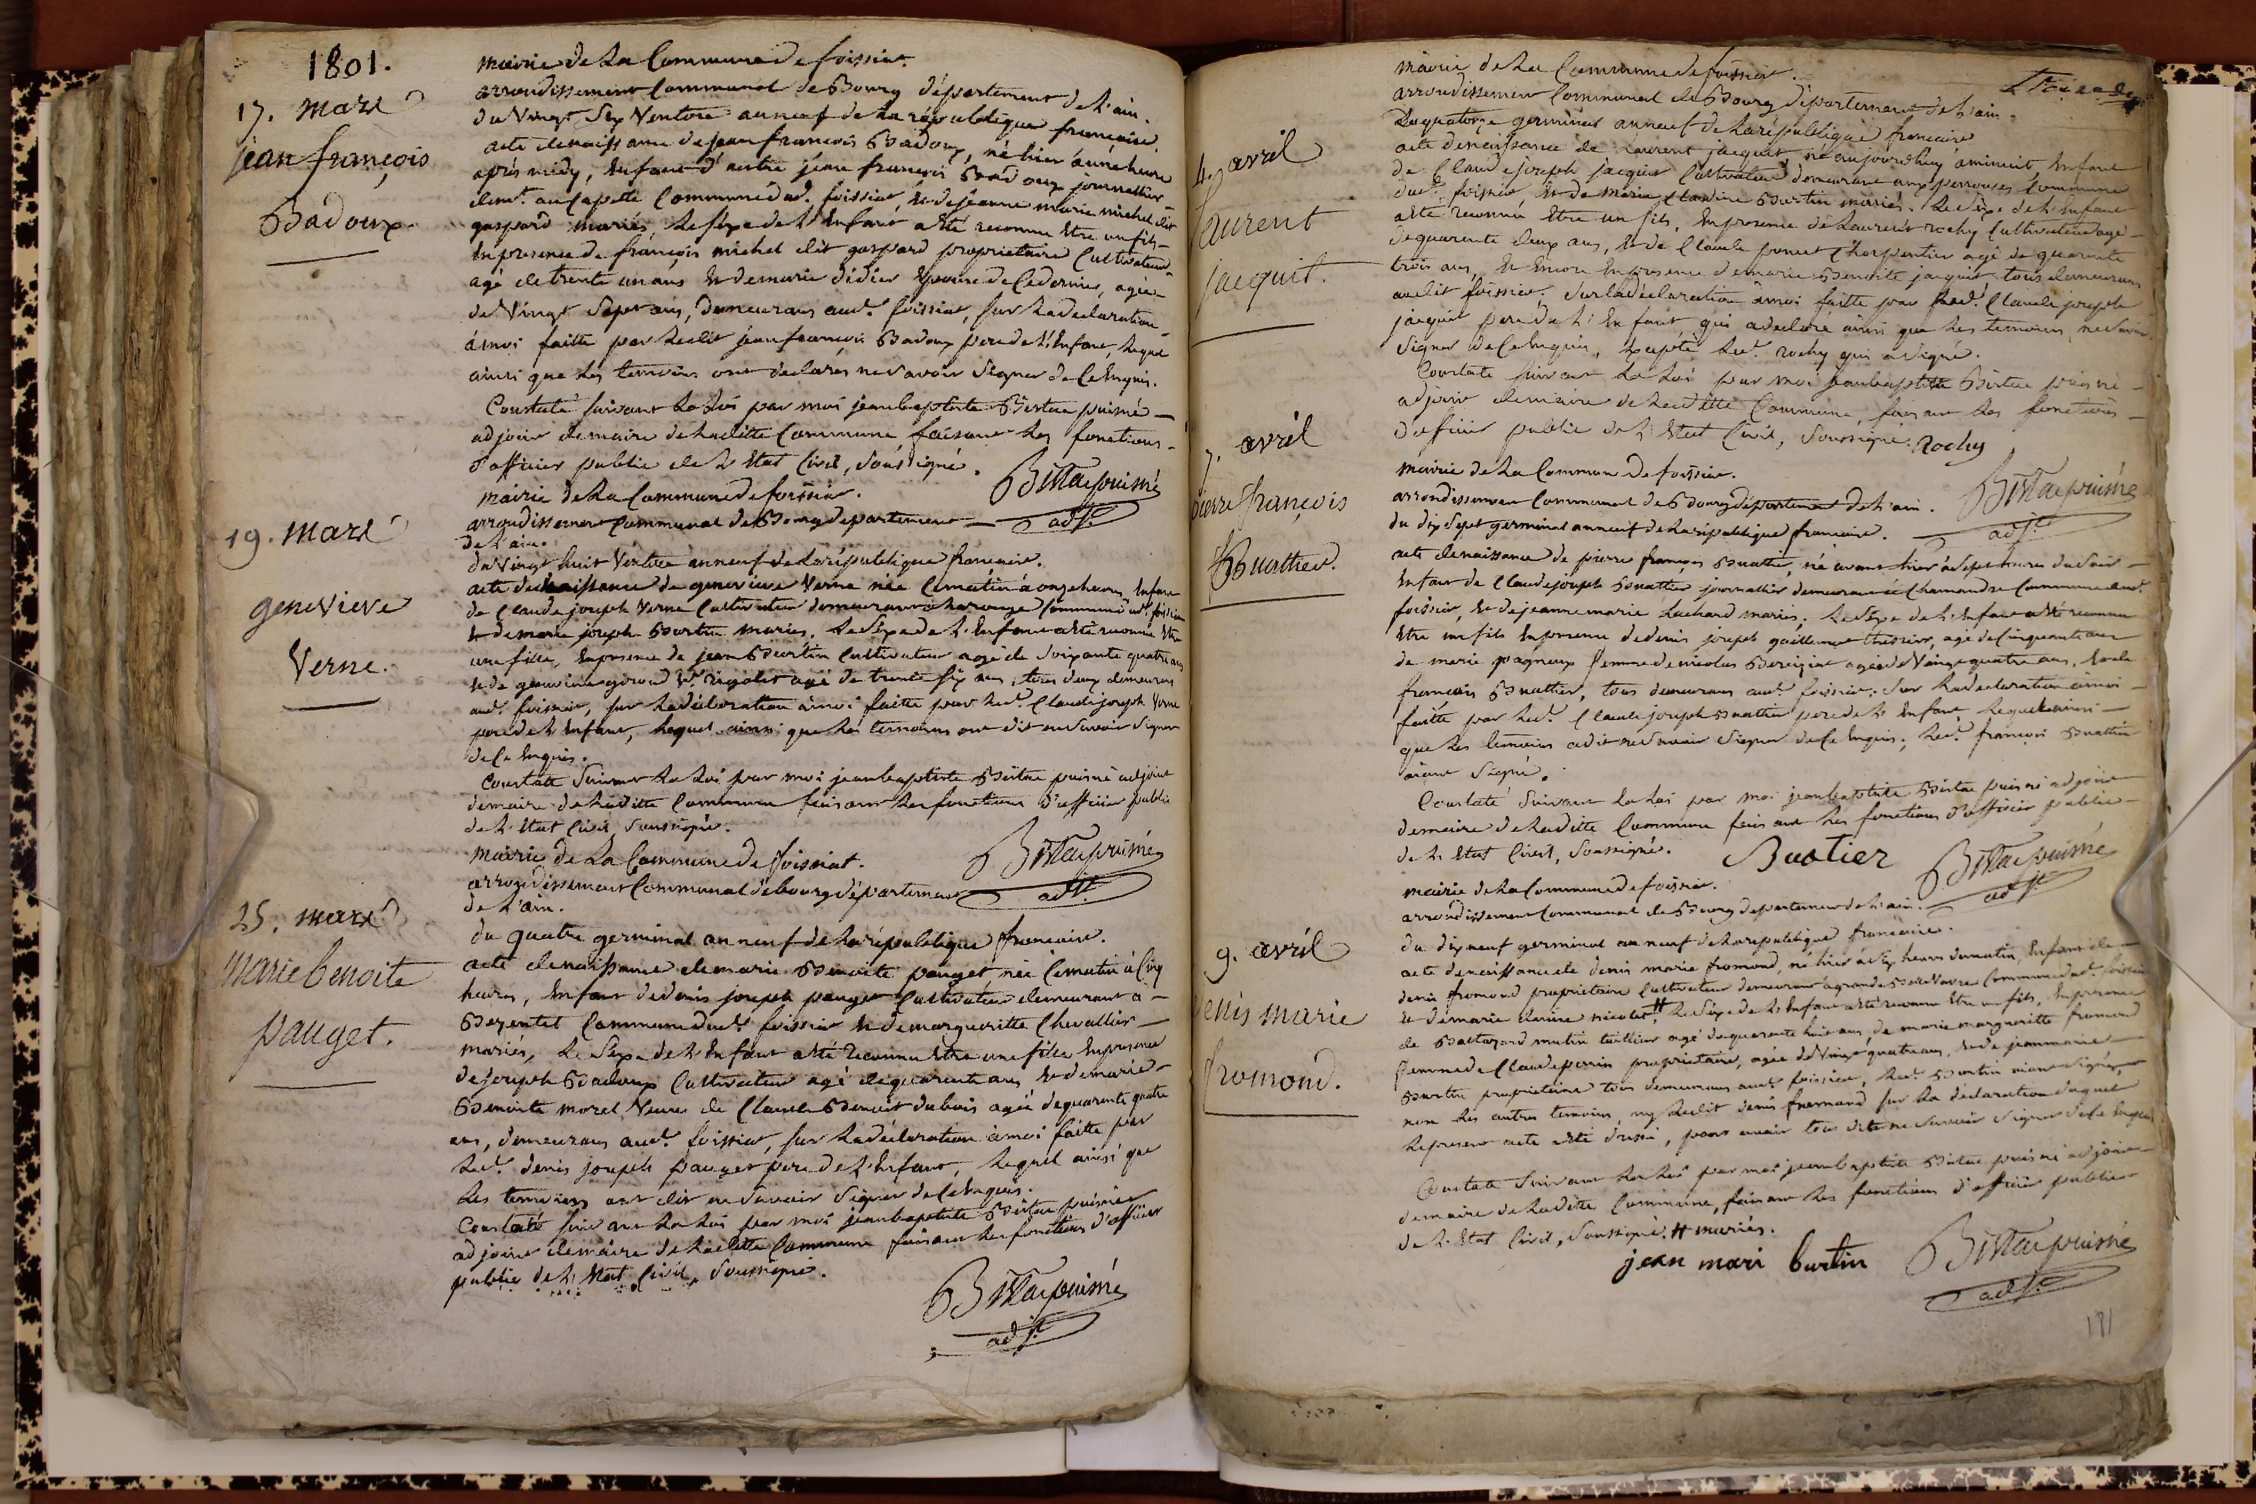 1801.
17. mars
jean françois
Badoux.
mairie de La Commune de foissiat.
arrondissement Communal de Bourg département de L'ain.
du Vingt Six Ventose an neuf de La république francaise.
acte de naissance de jean francois Badoux, né hier à une heure
après midy, Enfant d'autre jean françois Badoux journallier
demt. au Capete Commune dud. foissiat, & de jeanne marie michel dit
gaspard mariés, Le Sexe de L'Enfant a Eté reconnu Etre un fils -
En presence de françois michel dit gaspard propriétaire Cultivateur
agé de trente un ans & de marie didier Epouse de Ce dernier, agée
de Vingt Sept ans, demeurans aud. foissiat, Sur La déclaration
à moi faitte par Ledit jean francois Badoux pere de L'Enfant, Lequel
ainsi que Les temoins ont déclarés ne savoir Signer de Ce Enquis.
Constaté Suivant La Loi par moi jean baptiste Bistac puisné
adjoint de maire de Laditte Commune, faisant Les fonctions
d'officier public de L'Etat Civil, Soussigné.
Bistac puisné
adjt.
19. mars
genevieve
Verne.
mairie de La Commune de foissiat.
arrondissement Communal de Bourg departement
de L'ain.
du Vingt huit Ventose an neuf de La république francaise.
acte de naissance de genevieve Verne née Ce matin à onze heures, Enfant
de Claude joseph Verne Cultivateur demeurant à Commune dud. foissiat
& de marie joseph Burtin mariés. Le Sexe de L'Enfant a Eté reconnu Etre
une fille, En presence de jean Burtin Cultivateur agé de Soixante quatre ans
& de genevieve girod Ve. agé de trente Six ans, tous deux demeurans
aud. foissiat, Sur La déclaration à moi faitte par Led. Claude joseph Verne
pere de L'Enfant, Lequel ainsi que Les temoins ont dit ne Savoir Signer
de Ce Enquis.
Constaté Suivant La Loi par moi jean baptiste Bistac puisné adjoint
de maire de Laditte Commune faisant Les fonctions d'officier public
de L'Etat Civil, Soussigné.
Bistac puisné
adjt.
25. mars
Marie benoite
pauget.
mairie de La Commune de foissiat.
arrondissement Communal de bourg département
de L'ain.
du quatre germinal an neuf de La république francaise.
acte de naissance de marie Benoite pauget née Ce matin à Cinq
heures, Enfant de denis joseph pauget Cultivateur demeurant à
Bezentet Commune dud. foissiat & de margueritte Chevallier
mariés, Le Sexe de L'Enfant a Eté reconnu Etre une fille En presence
de joseph Badoux Cultivateur agé de quarante ans & de marie
Benoite morel Veuve de Claude Benoit dubois agée de quarante quatre
ans, demeurans aud. foissiat, Sur La déclaration à moi faitte par
Led. denis joseph pauget pere de L'Enfant, Lequel ainsi que
Les temoins ont dit ne Savoir Signer de Ce Enquis.
Constaté Suivant La Loi par moi jean baptiste Bistac puisné
adjoint de maire de Laditte Commune faisant Les fonctions d'officier
public de L'Etat Civil, Soussigné.
Bistac puisné
adjt.
4. avril
Laurent
jacquit.
mairie de La Commune de foissiat.
arrondissement Communal de Bourg département de L'ain.
Du quatorze germinal an neuf de La république francaise
acte de naissance de Laurent jacquit né aujourdhuy à minuit, Enfant
de Claude joseph jacquit Cultivateur demeurant aux perrouses Commune
dud. foissiat & de marie Claudine Burtin mariés. Le Sexe de L'Enfant
a Eté reconnu Etre un fils, En presence de Laurent rochy Cultivateur agé
de quarante deux ans, & de Claude poncet Charpentier agé de quarante
trois ans, & Encore En presence de marie Benoite jacquit tous demeurans
audit foissiat. Sur La déclaration à moi faitte par Led. Claude joseph
jacquit pere de L'Enfant, qui a déclaré ainsi que Les temoins ne Savoir
Signer de Ce Enquis, Excepté Led. rochy qui a Signé.
Constaté Suivant La Loi par moi jean baptiste Bistac puisné
adjoint de maire de Laditte Commune, faisant Les fonctions
d'officier public de L'Etat Civil, Soussigné. Rochy
Bistac puisné
adjt.
7. avril
pierre françois
Buathier.
mairie de La Commune de foissiat.
arrondissement Communal de Bourg département de L'ain.
du dix Sept germinal an neuf de La république francaise.
acte de naissance de pierre françois Buathier, né avant hier à Sept heures du Soir
Enfant de Claude joseph Buathier journallier demeurant à Chamandre Commune dud.
foissiat, & de jeanne marie Luchard mariés; Le Sexe de L'Enfant a Eté reconnu
Etre un fils En presence de denis joseph guillemot agé de Cinquante ans
de marie pagneux femme de nicolas Bereiziat agée de Vingt quatre ans, & de
françois Buathier, tous demeurans aud. foissiat; Sur La declaration à moi
faitte par Led. Claude joseph Buathier pere de L'Enfant, Lequel ainsi
que Les temoins a dit ne Savoir Signer de Ce Enquis; Led. françois Buathier
aiant Signé.
Constaté Suivant La Loi par moi jean baptiste Bistac puisné adjoint
de maire de Laditte Commune faisant Les fonctions d'officier public
de L'Etat Civil, Soussigné. Buatier
Bistac puisné
adjt.
9. avril
Denis marie
fromond.
mairie de La Commune de foissiat.
arrondissement Communal de Bourg departement de L'ain.
du dix neuf germinal an neuf de La république francaise.
acte de naissance de denis marie fromond, né hier à Six heures du matin, Enfant de
denis fromond propriétaire Cultivateur demeurant à grande Commune dud. foissiat
& de marie nicolet # Le Sexe de L'Enfant a Eté reconnu Etre un fils, En presence
de Baltazard mutin tuillier agé de quarante huit ans, de marie margueritte fromond
femme de Claude perrin propriétaire, agée de Vingt quatre ans, & de jean marie
Burtin propriétaire tous demeurans aud. foissiat, Led. Burtin aiant Signé,
non Les autres temoins, ny Ledit denis fromond Sur La déclaration duquel
Le present acte a Eté dressé, pour avoir tous dit ne Savoir Signer de Ce Enquis
Constaté Suivant La Loi par moi jean baptiste Bistac puisné adjoint
de maire de Laditte Commune, faisant Les fonctions d'officier public
de L'Etat Civil, Soussigné. # mariés.
jean mari burtin
Bistac puisné
adjt.
191